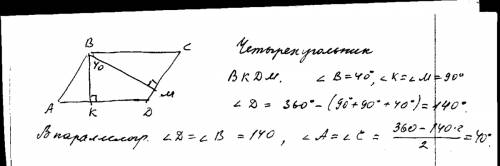 B
C
40
A
K
D
M
Четырехугольник
BKDM. ∠B=40°, ∠K=∠M=90°
∠D = 360°-(90°+90°+40°)=140°.
В параллелогр. ∠D=∠B=140, ∠A=∠C = (360-140·2)/2 = 40°